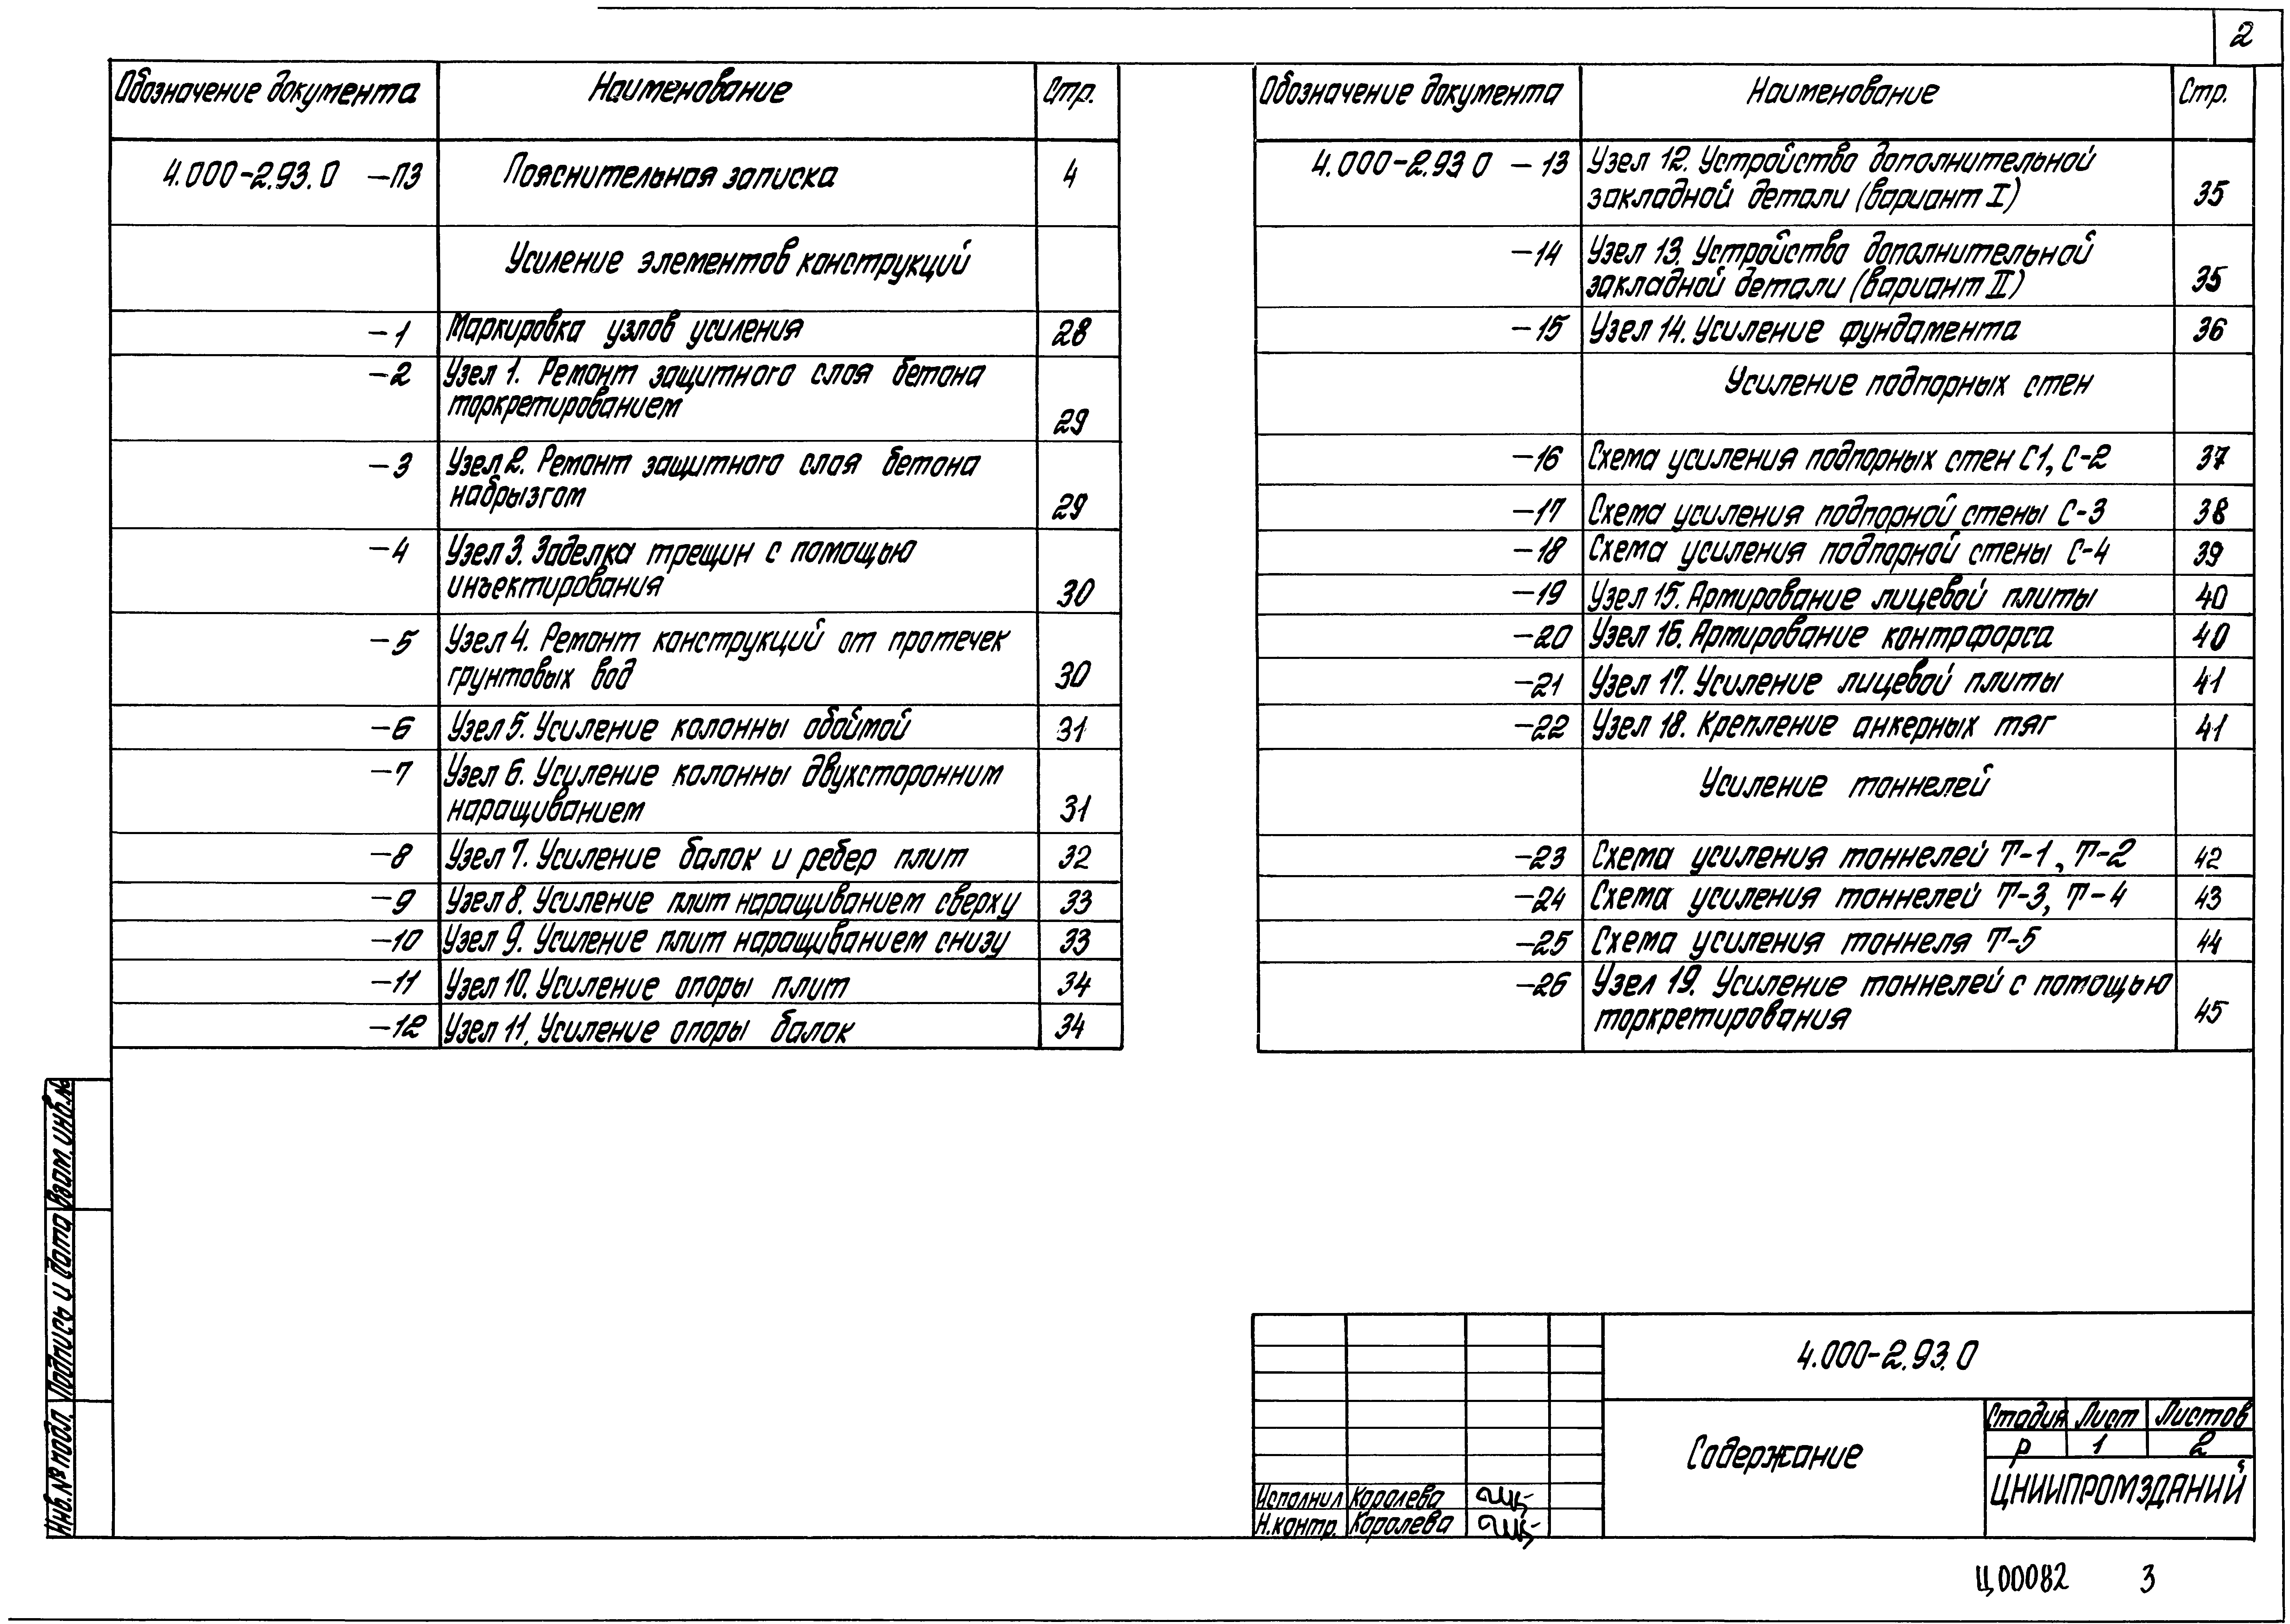 2
Обозначение документа Наименование Стр.
4.000-2.93.0 -ПЗ Пояснительная записка 4
Усиление элементов конструкций
-1 Маркировка узлов усиления 28
-2 Узел 1. Ремонт защитного слоя бетона
торкретированием 29
-3 Узел 2. Ремонт защитного слоя бетона
набрызгом 29
-4 Узел 3. Заделка трещин с помощью
инъектирования 30
-5 Узел 4. Ремонт конструкций от протечек
грунтовых вод 30
-6 Узел 5. Усиление колонны обоймой 31
-7 Узел 6. Усиление колонны двухсторонним
наращиванием 31
-8 Узел 7. Усиление балок и ребер плит 32
-9 Узел 8. Усиление плит наращиванием сверху 33
-10 Узел 9. Усиление плит наращиванием снизу 33
-11 Узел 10. Усиление опоры плит 34
-12 Узел 11. Усиление опоры балок 34
Обозначение документа Наименование Стр.
4.000-2.93 0 -13 Узел 12. Устройство дополнительной
закладной детали (вариант I) 35
-14 Узел 13. Устройство дополнительной
закладной детали (вариант II) 35
-15 Узел 14. Усиление фундамента 36
Усиление подпорных стен
-16 Схема усиления подпорных стен С1, С-2 37
-17 Схема усиления подпорной стены С-3 38
-18 Схема усиления подпорной стены С-4 39
-19 Узел 15. Армирование лицевой плиты 40
-20 Узел 16. Армирование контрфорса 40
-21 Узел 17. Усиление лицевой плиты 41
-22 Узел 18. Крепление анкерных тяг 41
Усиление тоннелей
-23 Схема усиления тоннелей Т-1, Т-2 42
-24 Схема усиления тоннелей Т-3, Т-4 43
-25 Схема усиления тоннеля Т-5 44
-26 Узел 19. Усиление тоннелей с помощью
торкретирования 45
Взам. инв.№
Подпись и дата
Инв.№ подл.
4.000-2.93.0
Содержание
Стадия Лист Листов
Р 1 2
ЦНИИПРОМЗДАНИЙ
Исполнил Королева
Н.контр. Королева
Ц00082 3